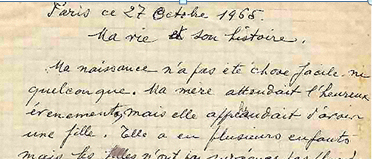 Paris ce 27 Octobre 1966.
Ma vie et son histoire.
Ma naissance n'a pas été chose facile ni
quelconque. Ma mère attendait l'heureux
évènement, mais elle d'avoir
une fille. Elle a eu plusieurs enfants
mais les filles n'ont pas